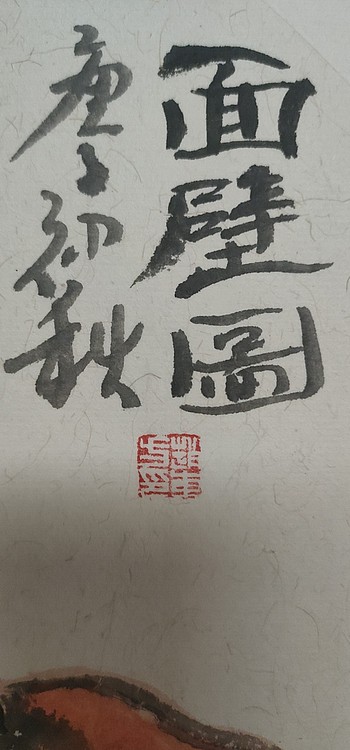 面壁圖
庚子初秋